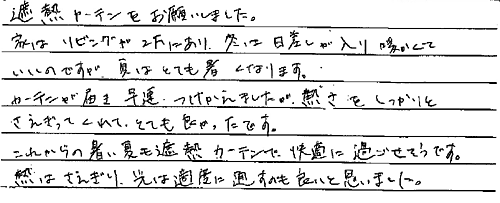 遮熱カーテンをお願いしました。
家はリビングが2Fにあり、冬は日差しが入り暖かくて
いいのですが、夏はとても暑くなります。
カーテンが届き早速つけかえましたが、熱さをしっかりと
さえぎってくれて、とても良かったです。
これからの暑い夏も遮熱カーテンで快適に過ごせそうです。
熱はさえぎり、光は適度に通すのも良いと思いました。